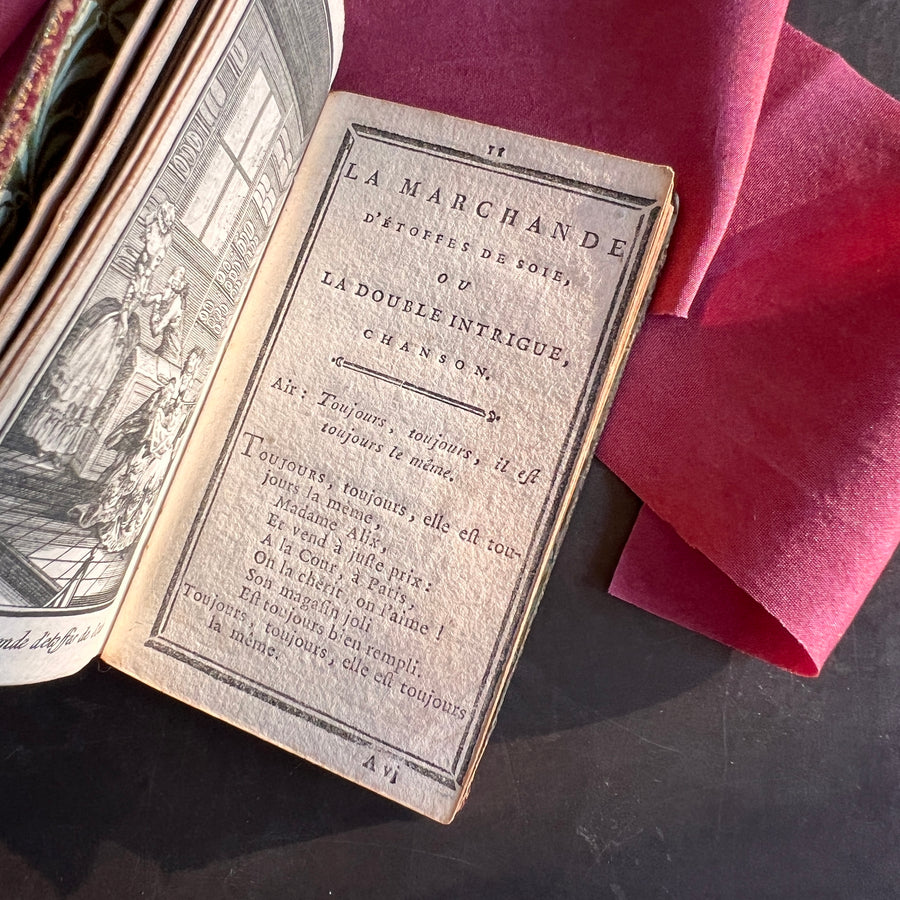 nde d'étoffes de
11
LA MARCHANDE
D'ÉTOFFES DE SOIE,
OU
LA DOUBLE INTRIGUE,
CHANSON.
Air : Toujours, toujours, il eſt
toujours le même.
TOUJOURS, toujours, elle eſt tou-
jours la même,
Madame Alix,
Et vend à juſte prix :
A la Cour, à Paris,
On la chérit, on l'aime !
Son magaſin joli
Eſt toujours bien rempli.
Toujours, toujours, elle eſt toujours
la même.
A vj